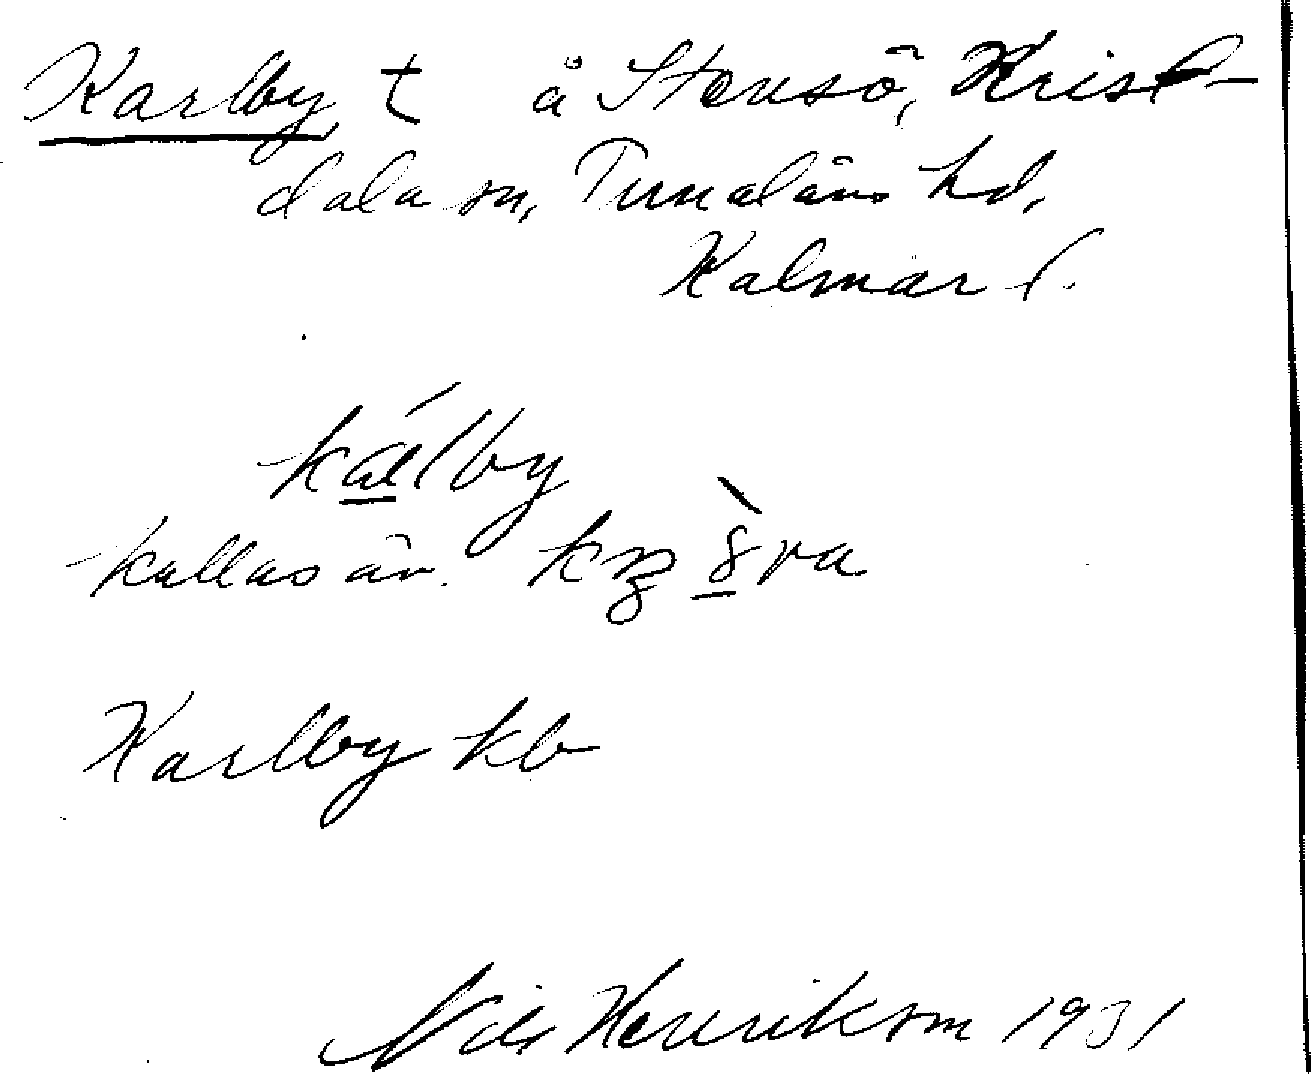 Karlby, t å Stensö, Krist-
dala sn, Tunaläns hd,
Kalmar l.
kálby
kallas äv.
Karlby kb
Nils Henrikson 1931